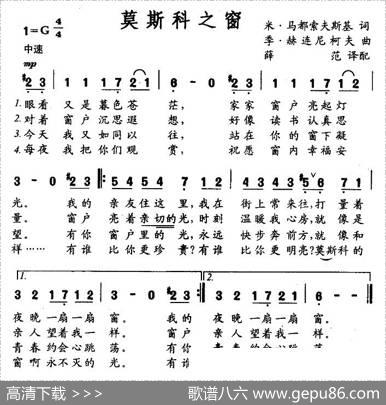 莫斯科之窗
1=G 4/4
中速
mp
米·马都索夫斯基 词
季·赫连尼柯夫 曲
薛 范 译配
#2 3 1 1 1 7 2 1 6 - 0 #2 3 1 1 1 7 6 7
1.眼看 又是暮色苍 茫， 家家 窗户亮起灯
2.对着 窗户沉思遐 想， 好像 读书认真思
3.今天 我又如同以 往， 站在 你的窗下凝
4.每夜 我把你们观 赏， 祝愿 窗内幸福安
光。 我的 亲友住这 里，我在 街上常来往，打量着
量。 窗户 亮着亲切的光，时刻 温暖我心房，就像是
望。 有你 窗户里的光，永远 快步奔前方，就像和
祥…… 有谁 比你更珍贵？有谁 比你更明亮？莫斯科的
1. 2.
3 2 1 7 1 2 3 - 0 #2 3 3 2 1 7 1 2 6 - 0
夜晚一扇一扇 窗。 我的 夜晚一扇一扇 窗。
亲人望着我一 样。 窗户 亲人望着我一 样。
青春约会心跳 荡。 有你 青春约会心跳 荡。
窗啊永不灭的 光。 有谁
高清下载 >>>
歌谱八六 www.gepu86.com